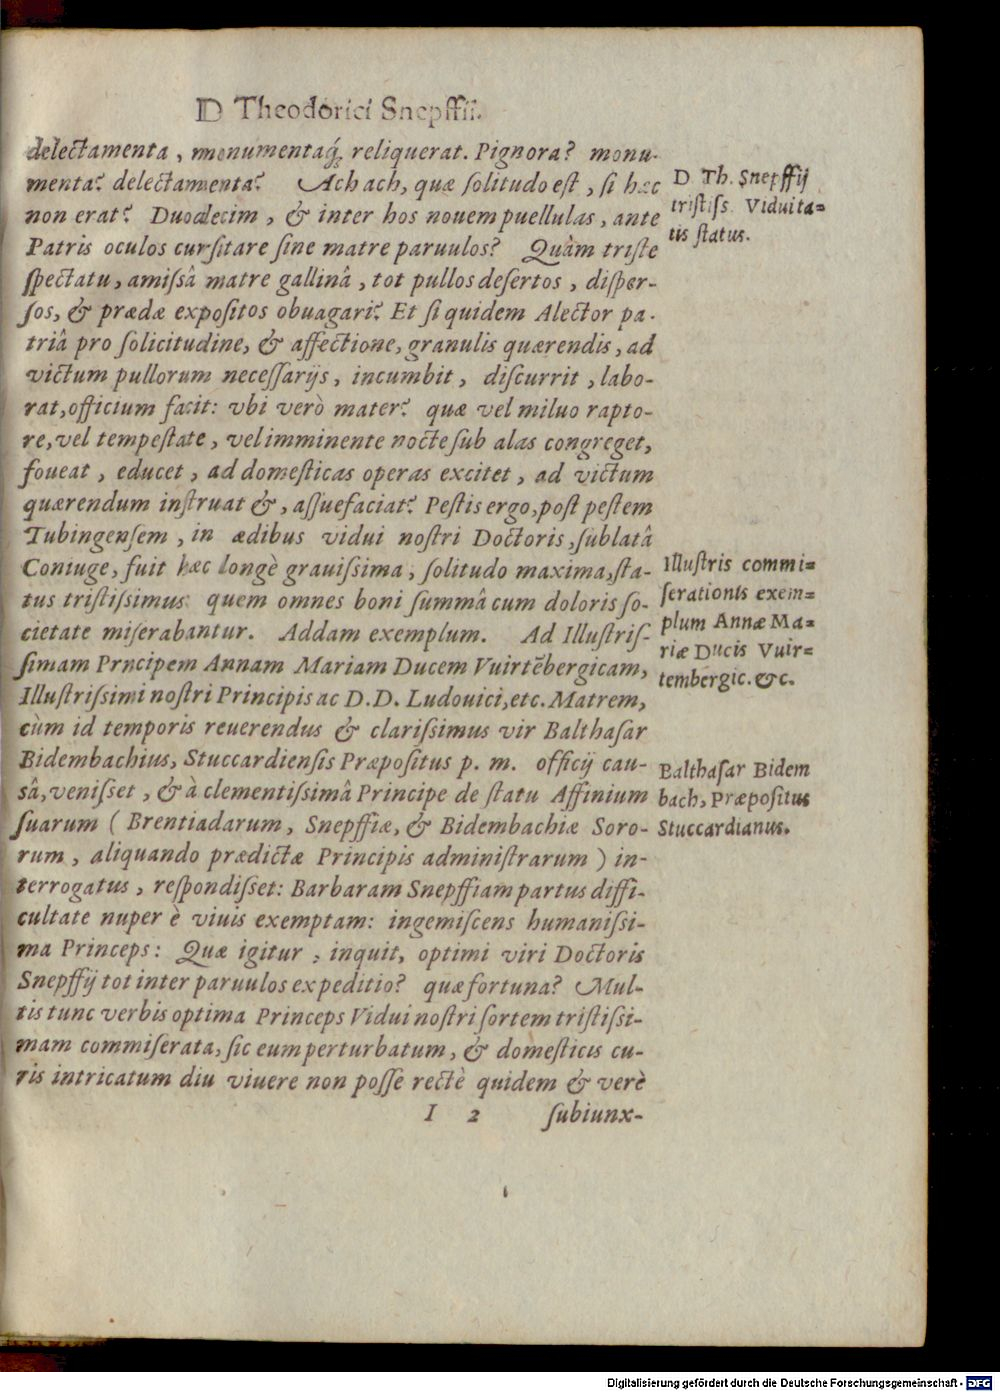 D Theodorici Snepffii.
delectamenta, monumentaq́; reliquerat. Pignora? monu-
menta? delectamenta? Ach ach, quæ ſolitudo eſt, ſi hæc
non erat? Duodecim, & inter hos nouem puellulas, ante
Patris oculos curſitare ſine matre paruulos? Quàm triſte
ſpectatu, amiſsâ matre gallinâ, tot pullos deſertos, diſper-
ſos, & prædæ expoſitos obuagari? Et ſi quidem Alector pa-
triâ pro ſolicitudine, & affectione, granulis quærendis, ad
victum pullorum neceſſarijs, incumbit, diſcurrit, labo-
rat, officium facit: vbi verò mater? quæ vel miluo rapto-
re, vel tempeſtate, vel imminente nocte ſub alas congreget,
foueat, educet, ad domeſticas operas excitet, ad victum
quærendum inſtruat &, aſſuefaciat? Peſtis ergo, poſt peſtem
Tubingenſem, in ædibus vidui noſtri Doctoris, ſublatâ
Coniuge, fuit hæc longè grauiſsima, ſolitudo maxima, ſta-
tus triſtiſsimus quem omnes boni ſummâ cum doloris ſo-
cietate miſerabantur. Addam exemplum. Ad Illuſtriſ-
ſimam Prncipem Annam Mariam Ducem Vuirtēbergicam,
Illuſtriſsimi noſtri Principis ac D.D. Ludouici, etc. Matrem,
cùm id temporis reuerendus & clariſsimus vir Balthaſar
Bidembachius, Stuccardienſis Præpoſitus p. m. officij cau-
ſâ, veniſſet, & à clementiſsimâ Principe de ſtatu Affinium
ſuarum ( Brentiadarum, Snepffiæ, & Bidembachiæ Soro-
rum, aliquando prædictæ Principis adminiſtrarum ) in-
terrogatus, reſpondiſſet: Barbaram Snepffiam partus diffi-
cultate nuper è viuis exemptam: ingemiſcens humaniſsi-
ma Princeps: Quæ igitur, inquit, optimi viri Doctoris
Snepffij tot inter paruulos expeditio? quæ fortuna? Mul-
tis tunc verbis optima Princeps Vidui noſtri ſortem triſtiſsi-
mam commiſerata, ſic eum perturbatum, & domeſticis cu-
ris intricatum diu viuere non poſſe rectè quidem & verè
I 2 ſubiunx-
D Th. Snepffij
triſtiſs. Viduita-
tis ſtatus.
Illuſtris commi-
ſerationis exem-
plum Annæ Ma-
riæ Ducis Vuir-
tembergic. &c.
Balthaſar Bidem
bach, Præpoſitus
Stuccardianus.
Digitalisierung gefördert durch die Deutsche Forschungsgemeinschaft - DFG